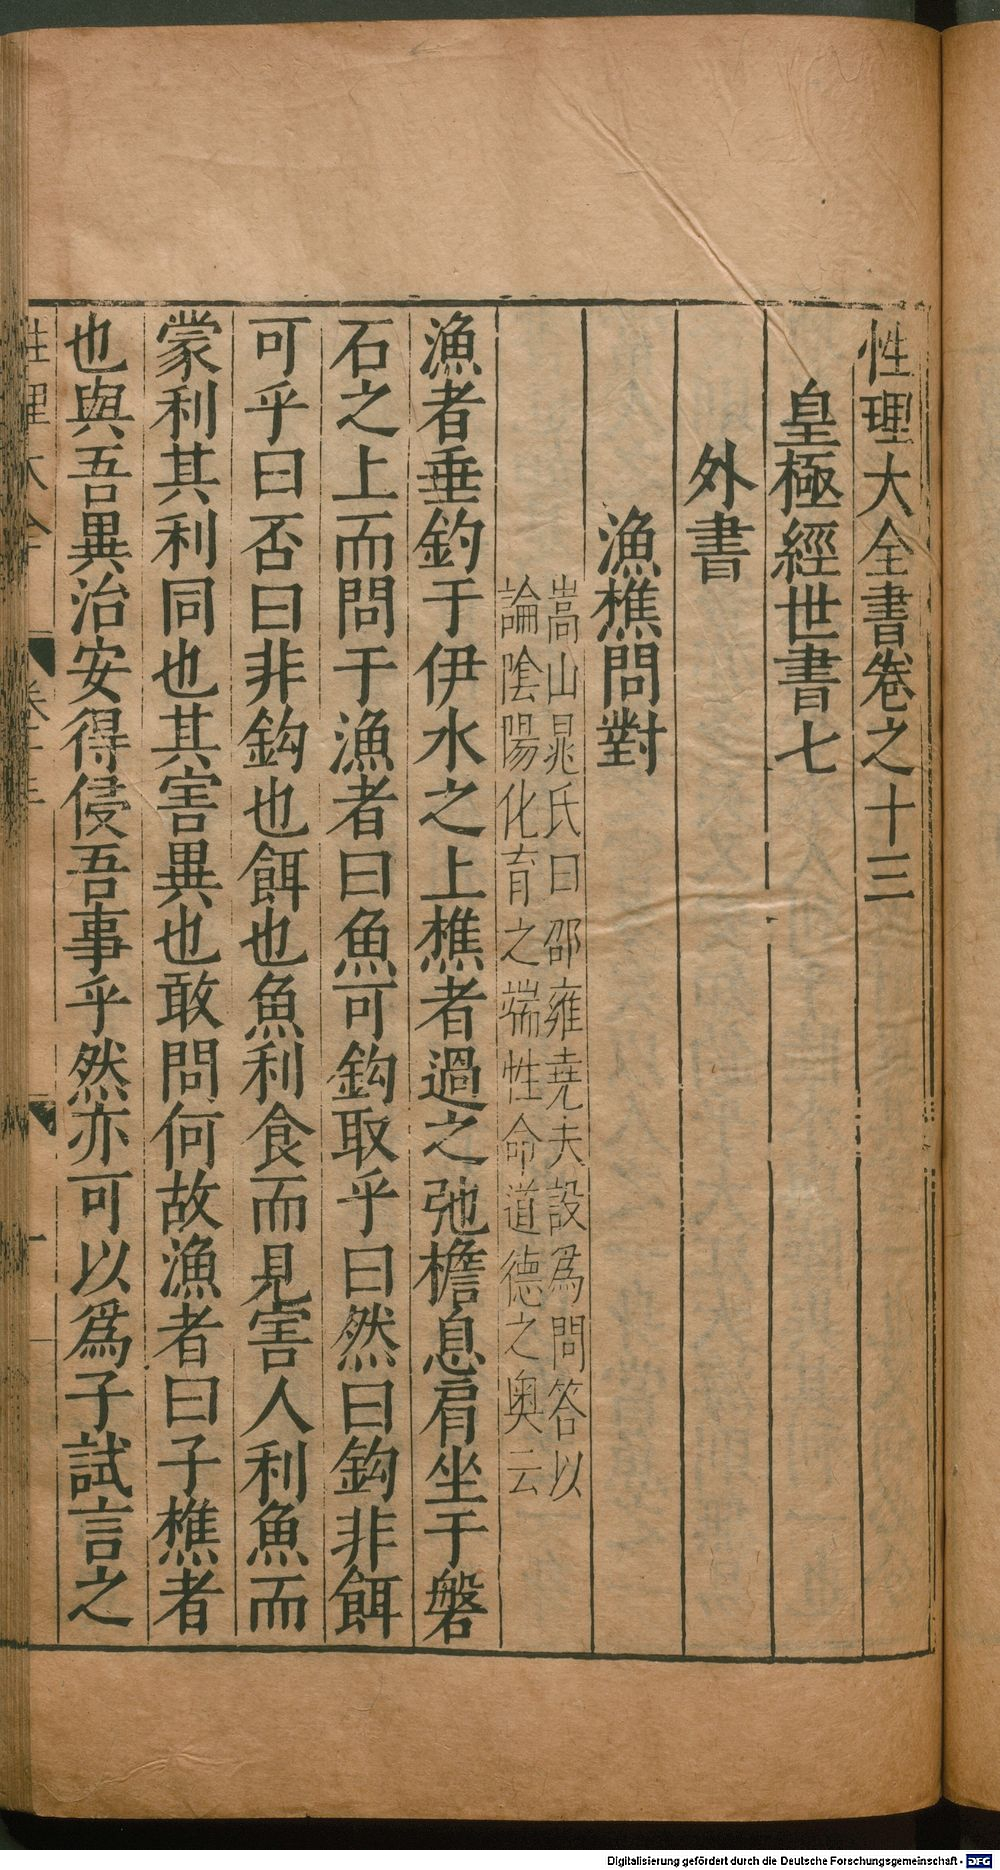 性理大全書卷之十三
皇極經世書七
外書
漁樵問對
嵩山晁氏曰邵雍堯夫設爲問答以
論陰陽化育之端性命道德之奥云
漁者垂釣于伊水之上樵者過之弛檐息肩坐于磐
石之上而問于漁者曰魚可鈎取乎曰然曰鈎非餌
可乎曰否曰非鈎也餌也魚利食而見害人利魚而
蒙利其利同也其害異也敢問何故漁者曰子樵者
也與吾異治安得侵吾事乎然亦可以爲子試言之
性理大全
卷十三
一
Digitalisierung gefördert durch die Deutsche Forschungsgemeinschaft - DFG